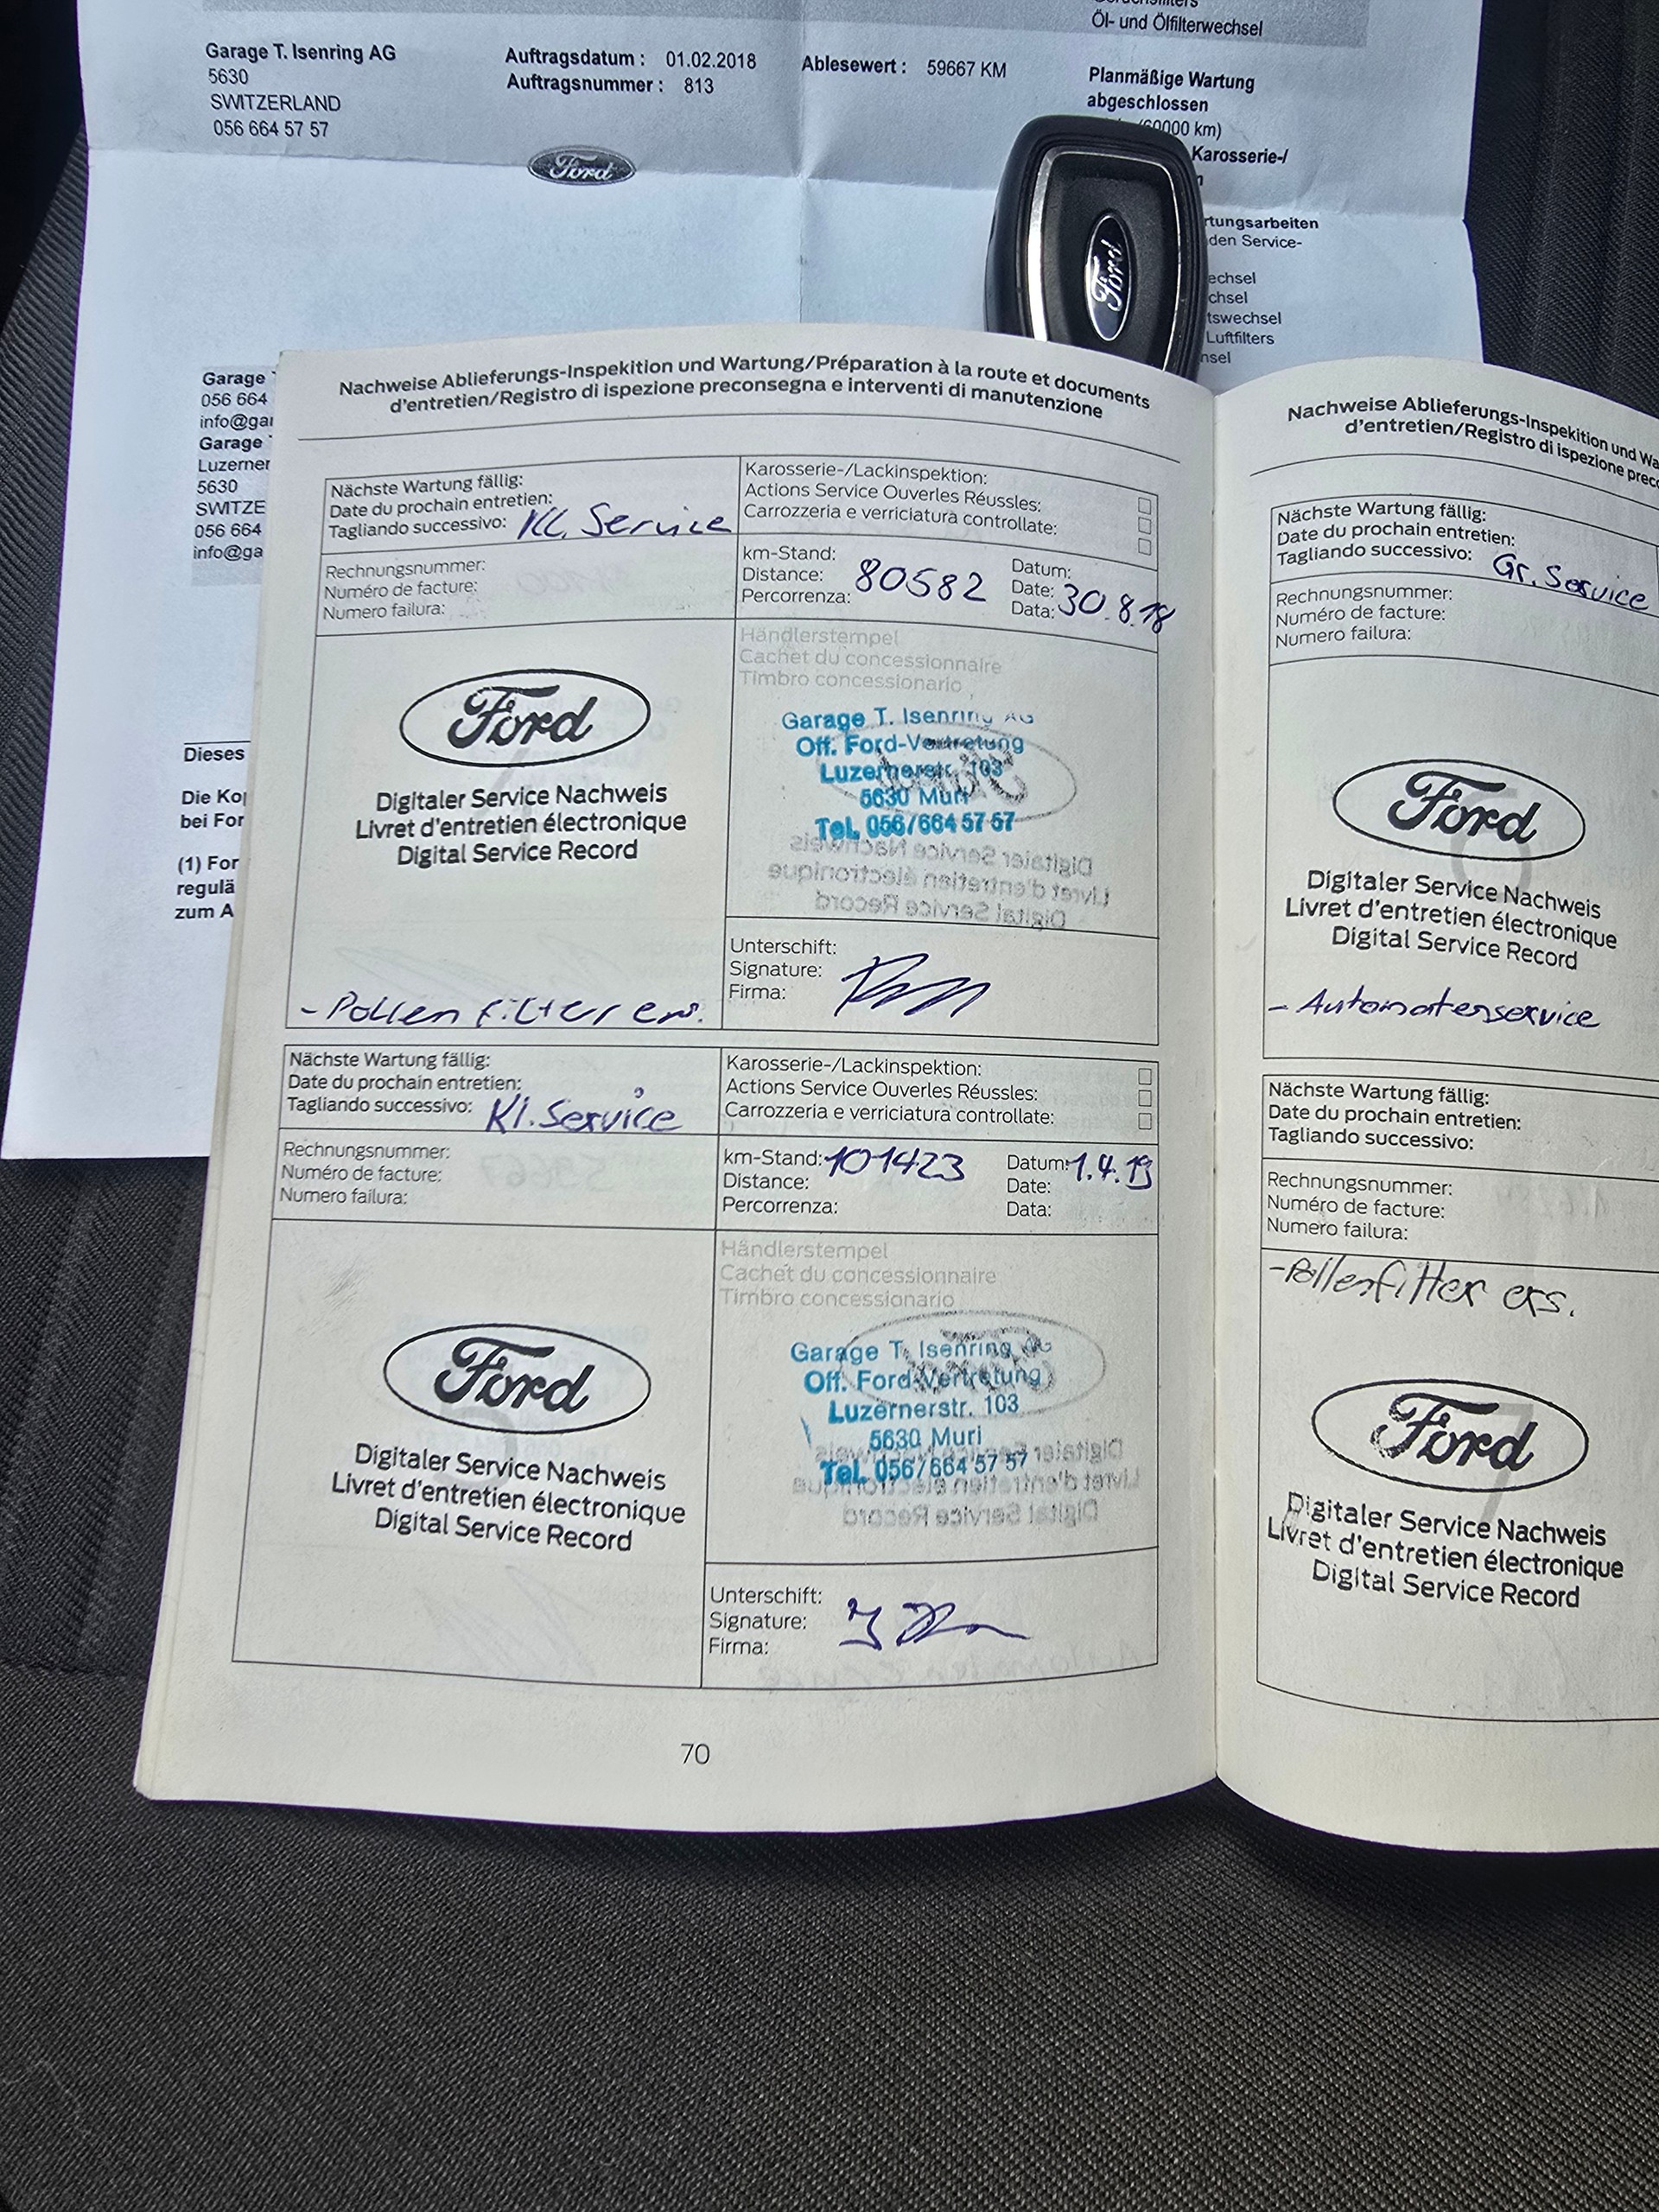 Öl- und Ölfilterwechsel
Garage T. Isenring AG
5630
SWITZERLAND
056 664 57 57
Auftragsdatum : 01.02.2018
Auftragsnummer : 813
Ablesewert : 59667 KM
Planmäßige Wartung
abgeschlossen
(60000 km)
Karosserie-/
Ford
Ford
den Service-
Luftfilters
Garage
056 664
Garage
5630
056 664
Dieses
bei For
(1) For
zum A
Nachweise Ablieferungs-Inspekition und Wartung/Préparation à la route et documents
d'entretien/Registro di ispezione preconsegna e interventi di manutenzione
Nächste Wartung fällig:
Date du prochain entretien:
Tagliando successivo: Kl. Service
Karosserie-/Lackinspektion:
Actions Service Ouverles Réussles:
Carrozzeria e verriciatura controllate:
Rechnungsnummer:
Numéro de facture:
Numero failura:
km-Stand:
Distance: 80582
Percorrenza:
Datum:
Date: 30.8.18
Data:
Ford
Digitaler Service Nachweis
Livret d'entretien électronique
Digital Service Record
- Pollenfilter ers.
Händlerstempel
Cachet du concessionnaire
Timbro concessionario
Garage T. Isenring AG
Off. Ford-Vertretung
Luzernerstr. 103
5630 Muri
Tel. 056/664 57 57
Unterschift:
Signature:
Firma:
Nächste Wartung fällig:
Date du prochain entretien:
Tagliando successivo: Kl. Service
Karosserie-/Lackinspektion:
Actions Service Ouverles Réussles:
Carrozzeria e verriciatura controllate:
Rechnungsnummer:
Numéro de facture:
Numero failura:
km-Stand: 101423
Distance:
Percorrenza:
Datum: 1.4.19
Date:
Data:
Ford
Digitaler Service Nachweis
Livret d'entretien électronique
Digital Service Record
Händlerstempel
Cachet du concessionnaire
Timbro concessionario
Garage T. Isenring AG
Off. Ford-Vertretung
Luzernerstr. 103
5630 Muri
Tel. 056/664 57 57
Unterschift:
Signature:
Firma:
70
Nachweise Ablieferungs-Inspekition und Wa
d'entretien/Registro di ispezione preco
Nächste Wartung fällig:
Date du prochain entretien:
Tagliando successivo: Gr. Service
Rechnungsnummer:
Numéro de facture:
Numero failura:
Ford
Digitaler Service Nachweis
Livret d'entretien électronique
Digital Service Record
- Automatenservice
Nächste Wartung fällig:
Date du prochain entretien:
Tagliando successivo:
Rechnungsnummer:
Numéro de facture:
Numero failura:
- Pollenfilter ers.
Ford
Digitaler Service Nachweis
Livret d'entretien électronique
Digital Service Record